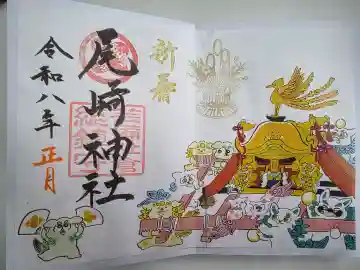 新春
尾崎神社
令和八年
正月